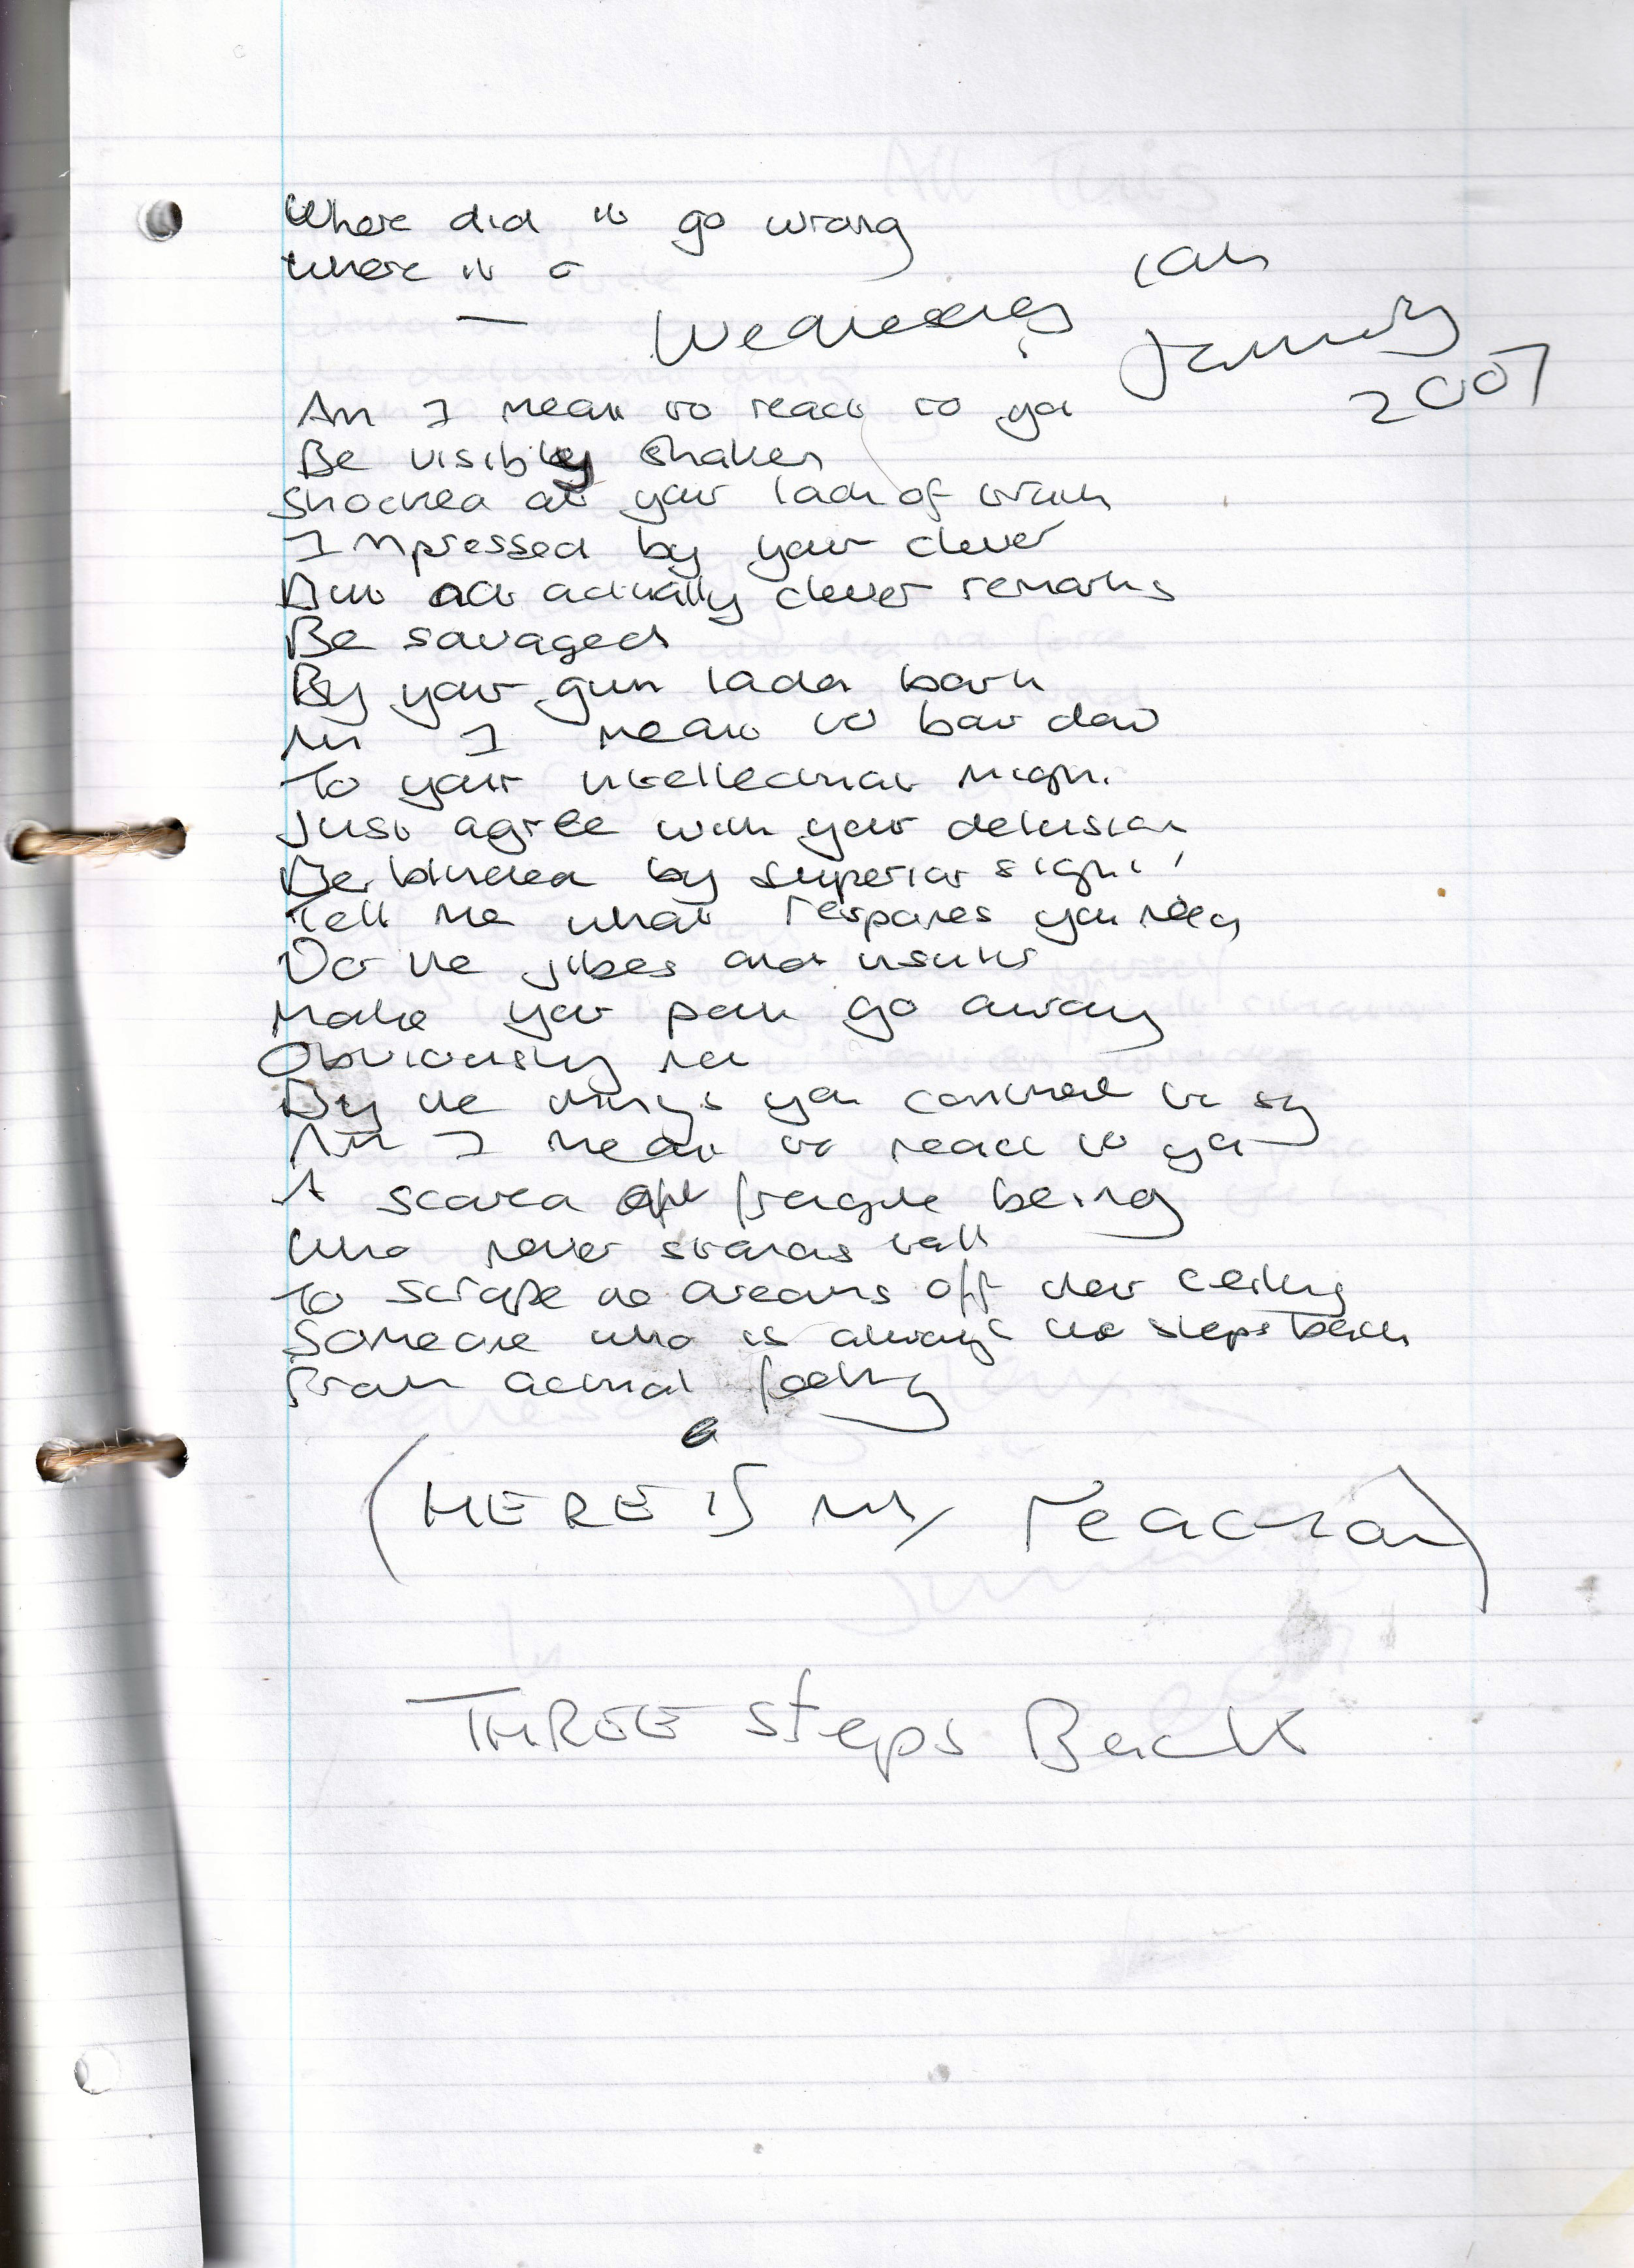 Where did it go wrong
Where it a
— Wednesday 10th
January
2007
Am I meant to react to you
Be visibly shaken
Shocked at your lack of
Impressed by your clever
But not actually clever remarks
Be savaged
By your gun bark
Am I meant to bow down
To your intellectual might
Just agree with your delusion
Be blinded by superior sight
Tell me what response you need
Do the jibes and insults
Make your pain go away
Obviously not
By the things you continue to say
Am I meant to react to you
A scared fragile being
Who never stands tall
To scrape the dreams off their ceiling
Someone who is always steps back
From actual feeling
(HERE IS MY reaction)
THREE steps Back